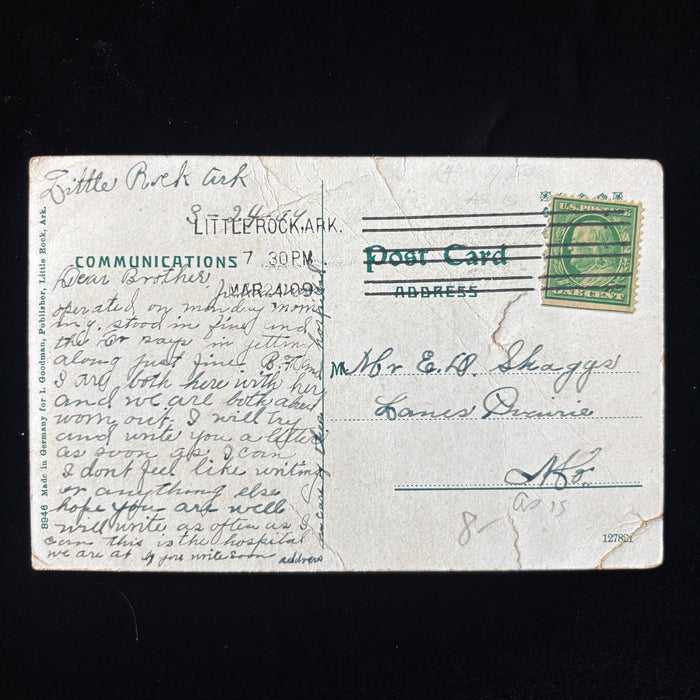 Little Rock Ark
3-24-09
LITTLE ROCK, ARK.
7 30 PM
MAR 24 09
COMMUNICATIONS
Dear Brother
operated on monday morn
ing. stood it fine and
the Dr says is getting
along just fine. B.F. and
I are both here with her
and we are both about
worn out. I will try
and write you a letter
as soon as I can
I dont feel like writing
or anything else
hope you are well
will write as often as I
can this is the hospital
we are at if you write soon address
in care of hospital
8946 Made in Germany for I. Goodman, Publisher, Little Rock, Ark.
U.S. POSTAGE
ONE CENT
Post Card
ADDRESS
M
Mr E.D. Shaggs
Lanes Prairie
Mo
as is
8-
127821